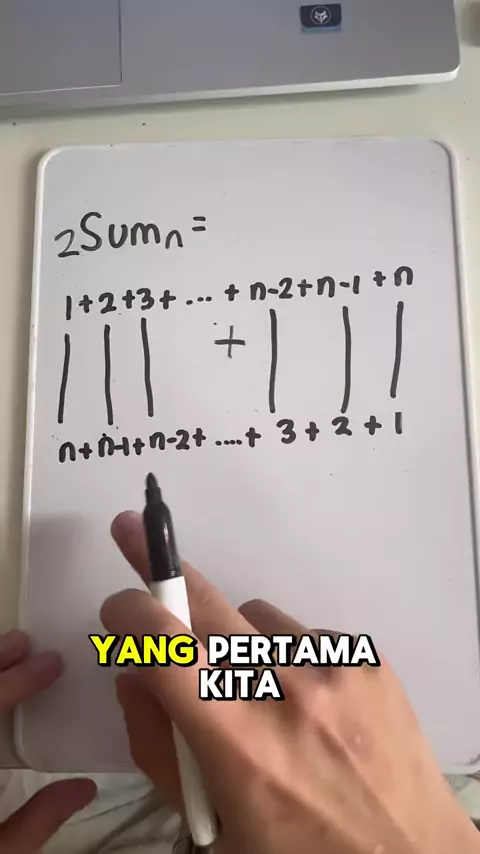 2Sumn=
1+2+3+ ... + n-2+n-1 +n
+
n+n-1+n-2+ ....+ 3+2+1
YANG PERTAMA
KITA